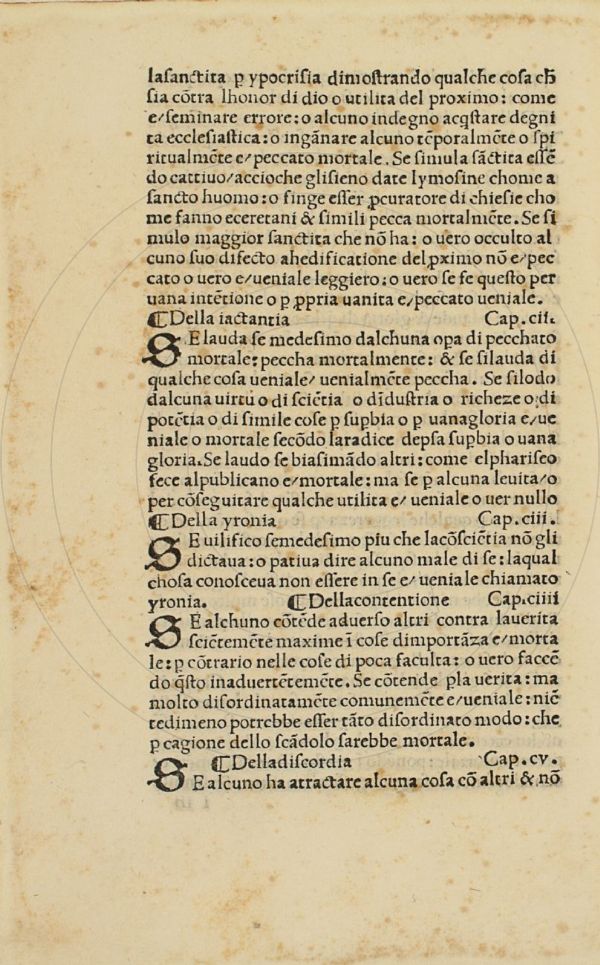 laſanctita ꝑ ypocriſia dimoſtrando qualche coſa cħ
ſia cõtra lhonor di dio o utilita del proximo: come
e/ſeminare errore: o alcuno indegno acq̃ſtare degni
ta eccleſiaſtica: o ingãnare alcuno tẽporalmẽte o ſpi
ritualmẽte e/peccato mortale. Se ſimula ſãctita eſſẽ
do cattiuo/accioche gliſieno date lymoſine chome a
ſancto huomo: o finge eſſer ꝓcuratore di chieſie cho
me fanno eceretani & ſimili pecca mortalmẽte. Se ſi
mulo maggior ſanctita che nõ ha: o uero occulto al
cuno ſuo difecto ahedificatione delꝓximo nõ e/pec
cato o uero e/ueniale leggiero: o uero ſe fe queſto per
uana intẽtione o ꝑ ꝓpria uanita e/peccato ueniale.
¶Della iactantia Cap.cii.
SE lauda ſe medeſimo dalchuna opa di pecchato
mortale: peccha mortalmente: & ſe ſilauda di
qualche coſa ueniale/ uenialmẽte peccha. Se ſilodo
dalcuna uirtu o di ſciẽtia o dĩduſtria o richeze o di
potẽtia o di ſimile coſe ꝑ ſupbia o ꝑ uanagloria e/ue
niale o mortale ſecõdo laradice depſa ſupbia o uana
gloria. Se laudo ſe biaſimãdo altri: come elphariſeo
fece alpublicano e/mortale: ma ſe ꝑ alcuna leuita/o
per cõſeguitare qualche utilita e/ ueniale o uer nullo
¶Della yronia Cap.ciii.
SE uilifico ſemedeſimo piu che lacõſciẽtia nõ gli
dictaua: o patiua dire alcuno male di ſe: laqual
choſa conoſceua non eſſere in ſe e/ ueniale chiamato
yronia. ¶Dellacontentione Cap.ciiii
SE alchuno cõtẽde aduerſo altri contra lauerita
ſciẽtemẽte maxime ĩ coſe dimportãza e/morta
le: ꝑ cõtrario nelle coſe di poca faculta: o uero faccẽ
do q̃ſto inaduertẽtemẽte. Se cõtende pla uerita: ma
molto diſordinatamẽte comunemẽte e/ueniale: niẽ
tedimeno potrebbe eſſer tãto diſordinato modo: che
ꝑ cagione dello ſcãdolo ſarebbe mortale.
¶Delladiſcordia Cap.cv.
SE alcuno ha atractare alcuna coſa cõ altri & nõ